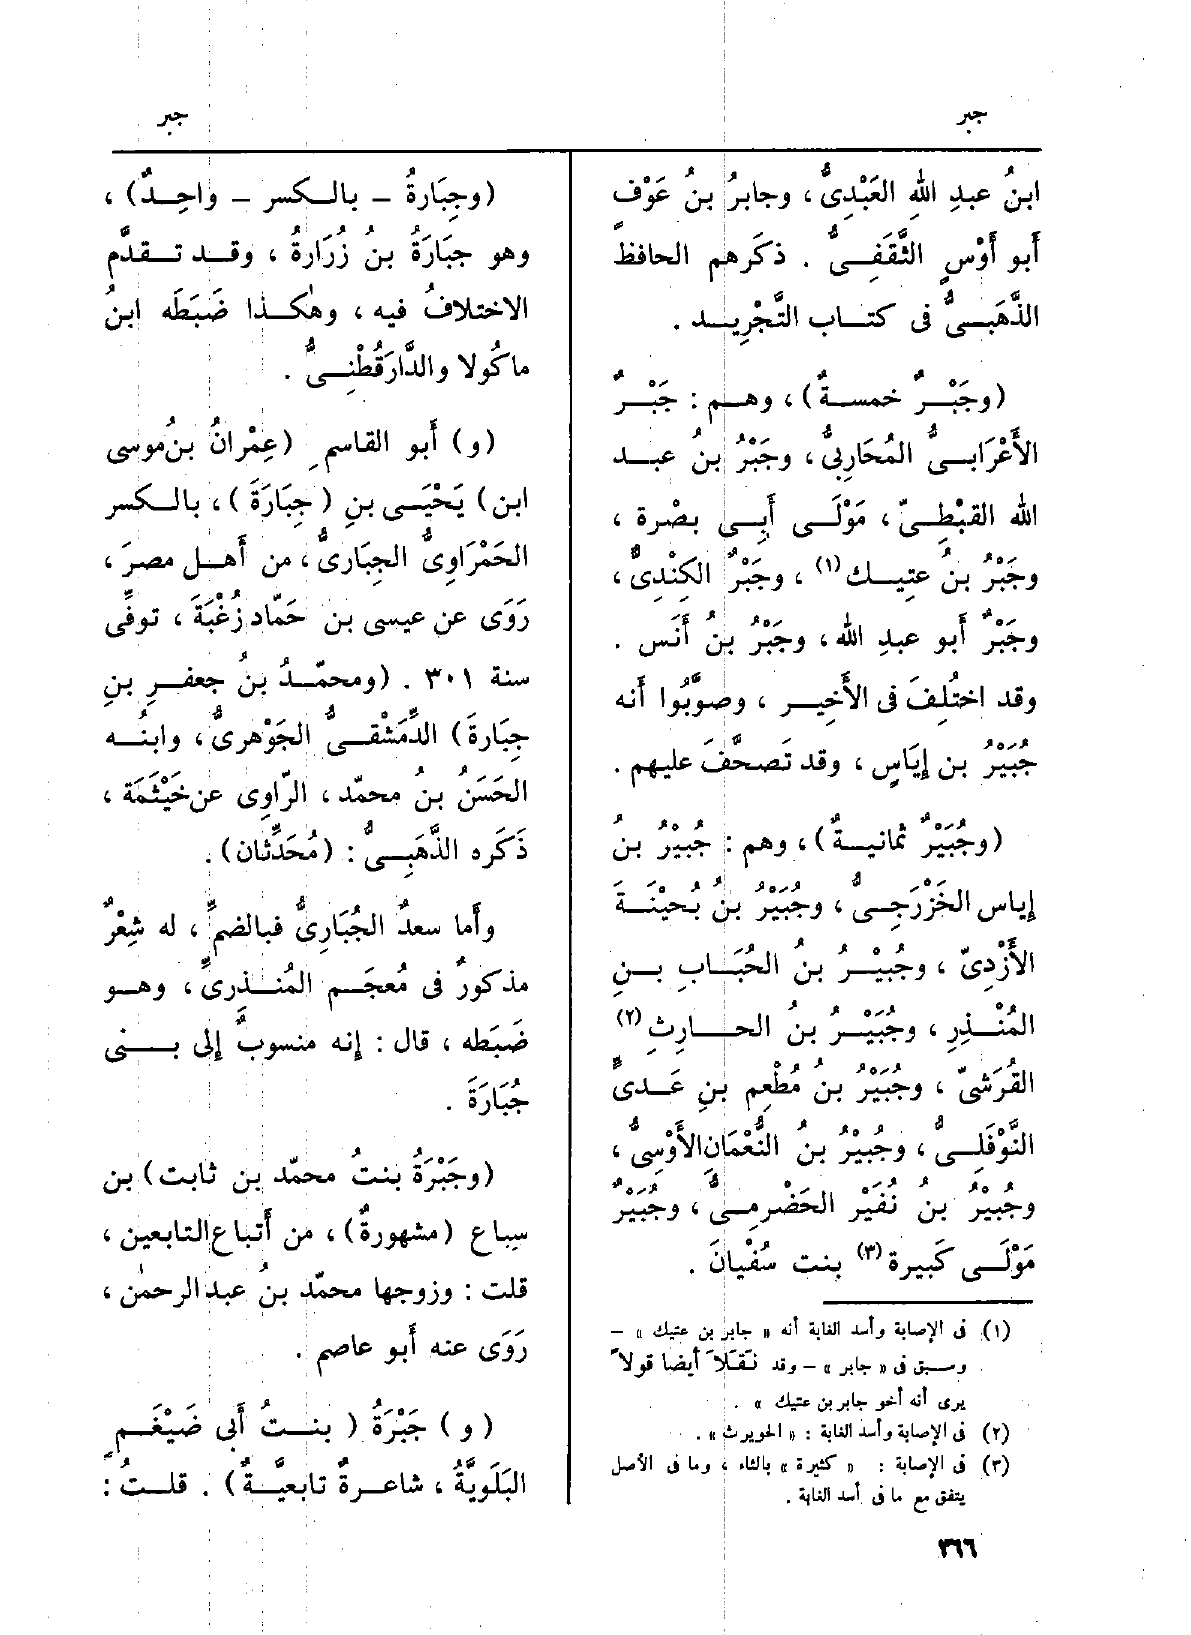 جبر
جبر
ابنُ عبدِ اللهِ العَبْدِىُّ ، وجابرُ بنُ عَوْف
أبو أَوْسٍ الثَّقَفِىُّ . ذكَرهم الحافظُ
الذَّهَبىُّ فى كتاب التَّجْرِيد .
(وجَبْرٌ خمسةٌ) ، وهم : جَبْرٌ
الأَعْرَابىُّ المُحَارِبىُّ ، وجَبْرُ بنُ عبد
الله القبْطِىّ ، مَوْلَى أَبِى بصْرة ،
وجَبْرُ بنُ عتِيك (١) ، وجَبْرٌ الكِنْدِىُّ ،
وجَبْرٌ أبو عبدِ الله ، وجَبْرُ بنُ أَنَس .
وقد اختُلِفَ فى الأَخِير ، وصوَّبُوا أنه
جُبَيْرُ بن إيَاسٍ ، وقد تَصحَّفَ عليهم .
(وجُبَيْرٌ ثمانيةٌ) ، وهم : جُبَيْرُ بن
إياس الخَزْرجِىُّ ، وجُبَيْرُ بنُ بُحَيْنَةَ
الأَزْدِىّ ، وجُبيْرُ بنُ الحُبَابِ بن
المُنْذِرِ ، وجُبَيْرُ بنُ الحارِثِ (٢)
القُرَشىّ ، وجُبَيْرُ بنُ مُطْعِم بنِ عَدىٍّ
النَّوْفَلِىُّ ، وجُبيْرُ بنُ النُّعْمَانِ الأَوْسِىُّ ،
وجُبيْرُ بنُ نُفَيْر الحَضْرمِىُّ ، وجُبَيْرٌ
مَوْلَى كَبيرة (٣) بنت سُفْيانَ .
(١) فى الإصابة وأسد الغابة أنه « جابر بن عتيك » –
وسبق فى « جابر » – وقد نَقَلاَ أيضا قولاً
يرى أنه أخو جابر بن عتيك » .
(٢) فى الإصابة وأسد الغابة : « الحويرث » .
(٣) فى الإصابة : « كثيرة » بالثاء ، وما فى الأصل
يتفق مع ما فى أسد الغابة .
(وجِبَارةُ – بالكسر – واحِدٌ) ،
وهو جِبَارَةُ بنُ زُرَارةُ ، وقد تقدَّم
الاختلافُ فيه ، وهٰكذا ضَبَطَه ابنُ
ماكُولا والدَّارَقُطْنِىُّ .
(و) أَبو القاسمِ (عِمْرانُ بنُ موسى
ابن) يَحْيَى بنِ (جِبَارَةَ) ، بالكسر
الحَمْرَاوِىُّ الجِبَارىُّ ، من أَهل مصرَ ،
رَوَى عن عيسى بن حَمَّاد زُغْبَةَ ، توفِّى
سنة ٣٠١ . (ومحمَّدُ بنُ جعفرِ بنِ
جِبَارةَ) الدِّمَشْقىُّ الجَوْهرىُّ ، وابنُه
الحَسَنُ بنُ محمّد ، الرّاوِى عن خَيْثَمَة ،
ذَكَره الذَّهَبِىُّ : (مُحَدِّثان) .
وأما سعدٌ الجُبَارِىُّ فبالضمِّ ، له شِعْرٌ
مذكورٌ فى مُعجَم المُنْذرىِّ ، وهو
ضَبَطه ، قال : إنه منسوبٌ إلى بنى
جُبَارَةَ .
(وجَبْرَةُ بنتُ محمّد بن ثابت) بن
سِباع (مشهورةٌ) ، من أَتباع التابعين ،
قلت : وزوجها محمّد بنُ عبد الرحمٰن ،
رَوَى عنه أَبو عاصم .
(و) جَبْرَةُ (بنتُ أبى ضَيْغَمٍ
البَلَوِيَّةُ ، شاعرةٌ تابعيَّةٌ) . قلتُ :
٣٦٦